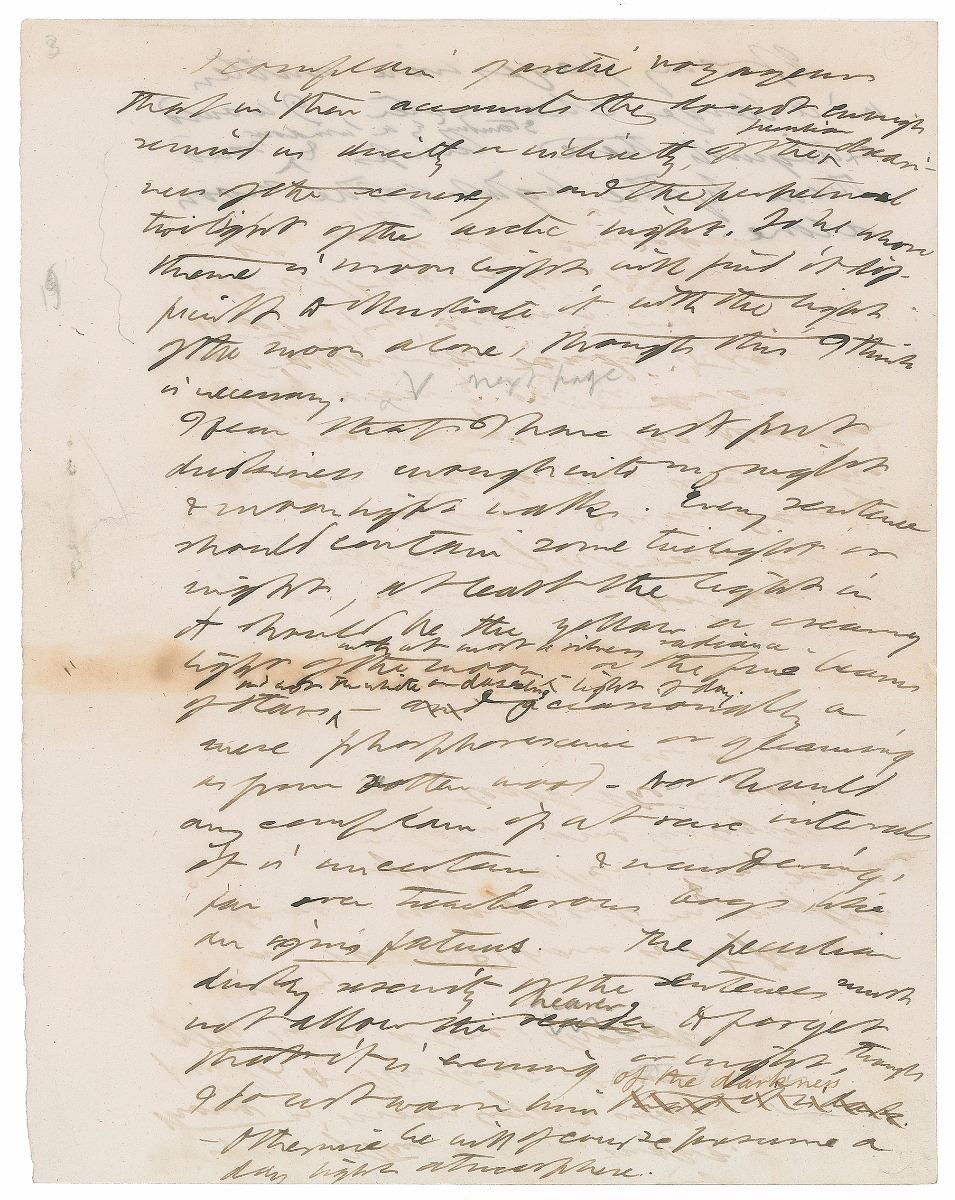 3
I complain of arctic voyagers
that in their accounts they do not enough
remind us directly or indirectly, of the peculiar dreari-
ness of the scenery – and the perpetual
twilight of the arctic night. So he whose
theme is moonlight will find it dif-
ficult to illustrate it with the light
of the moon alone, though this I think
is necessary.
next page
I fear that I have not put
duskiness enough into my night
& moonlight walks. Every sentence
should contain some twilight or
night, at least the light in
it should be the yellow or creamy
light of the moon with at most a silvery radiance or the fine beams
of stars, and not the white or dazzling light of day – and occasionally a
mere phosphorescence or gleaming
as from rotten wood – Nor would
any complain if at rare intervals
it is uncertain & wandering,
far over treacherous bogs, like
an ignis fatuus. The peculiar
dusky serenity of the sentences must
not allow the reader hearer to forget
that it is evening or night, though
I do not warn him of the darkness that it is dark.
– Otherwise he will of course presume a
day light atmosphere.